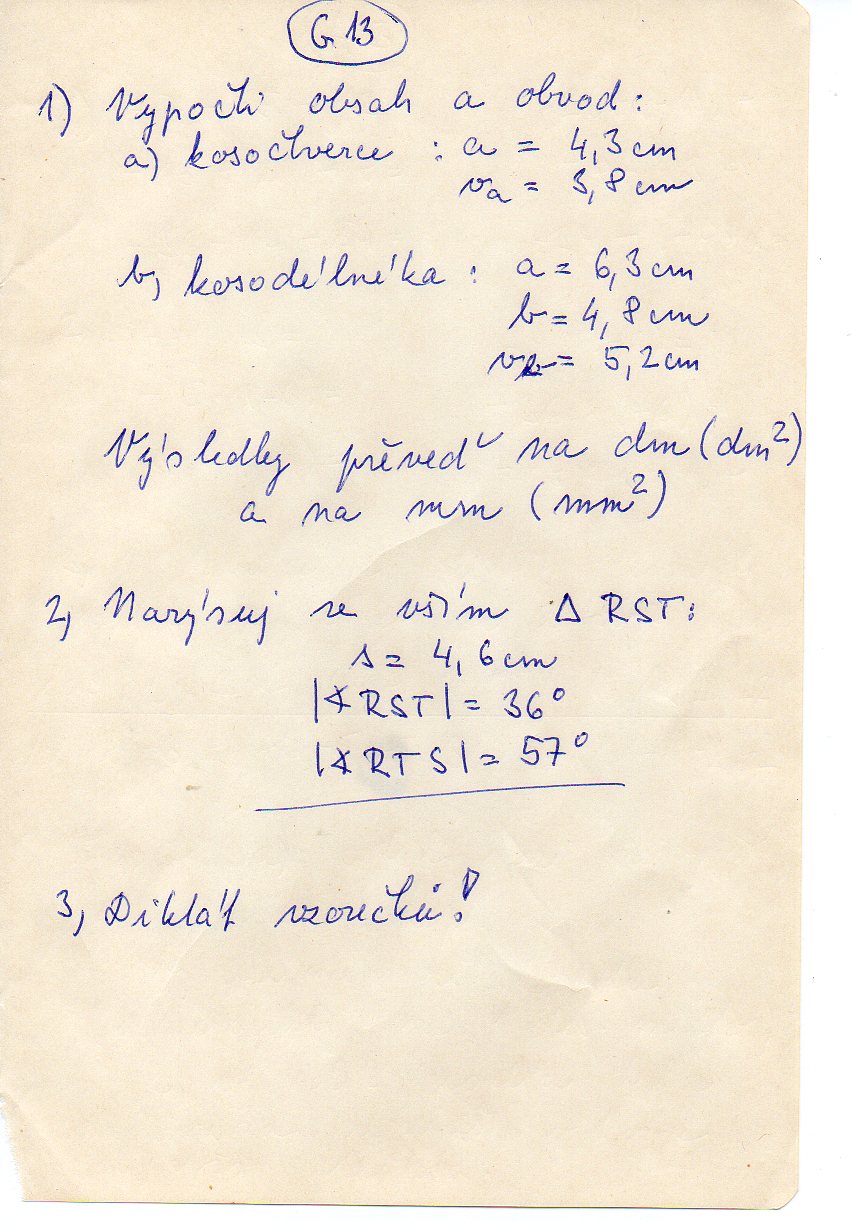 G 13
1) Vypočti obsah a obvod:
a) kosočtverce : a = 4,3 cm
va = 3,8 cm
b, kosodélníka : a = 6,3 cm
b = 4,8 cm
vb = 5,2 cm
Výsledky převeď na dm (dm²)
a na mm (mm²)
2, Narýsuj se vším Δ RST:
s = 4,6 cm
|∢RST| = 36°
|∢RTS| = 57°
3, Diktát vzorečků!